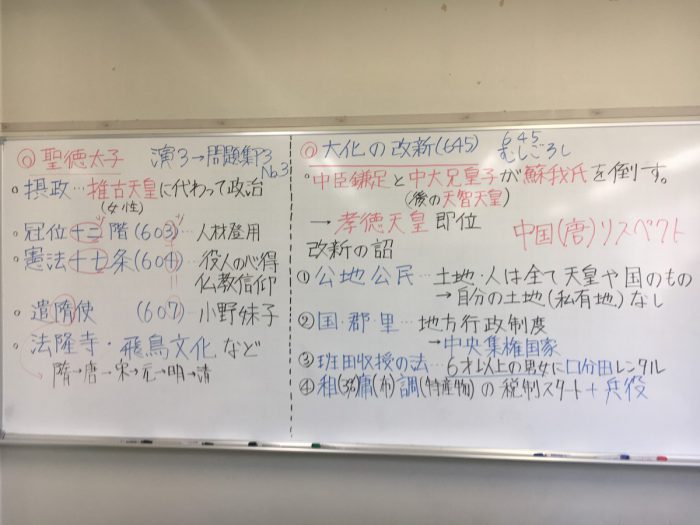 ◎聖徳太子 演3→問題集P3
No.3
○摂政…推古天皇に代わって政治
(女性)
○冠位十二階(603)…人材登用
○憲法十七条(604)…役人の心得
仏教信仰
○遣隋使 (607)…小野妹子
○法隆寺・飛鳥文化 など
→隋→唐→宋→元→明→清
◎大化の改新(645) 645
むしごろし
○中臣鎌足と中大兄皇子が蘇我氏を倒す。
(後の天智天皇)
→孝徳天皇 即位
中国(唐)リスペクト
改新の詔
①公地公民…土地・人は全て天皇や国のもの
→自分の土地(私有地)なし
②国・郡・里…地方行政制度
→中央集権国家
③班田収授の法…6才以上の男女に口分田レンタル
④租(3%)庸(布)調(特産物)の税制スタート+兵役